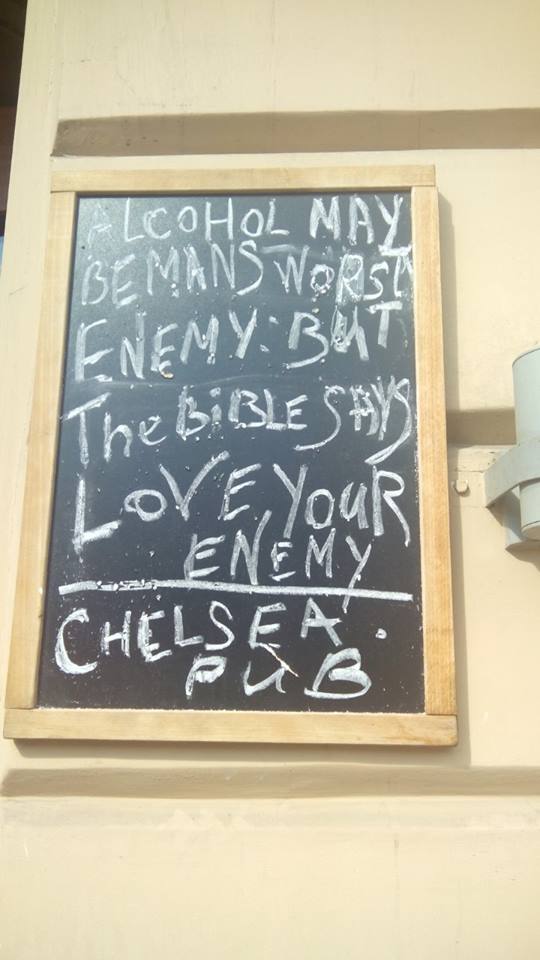 ALCOHOL MAY
BE MANS WORST
ENEMY: BUT
The BiBLE SAYS
LOVE YOUR
ENEMY
CHELSEA.
PUB